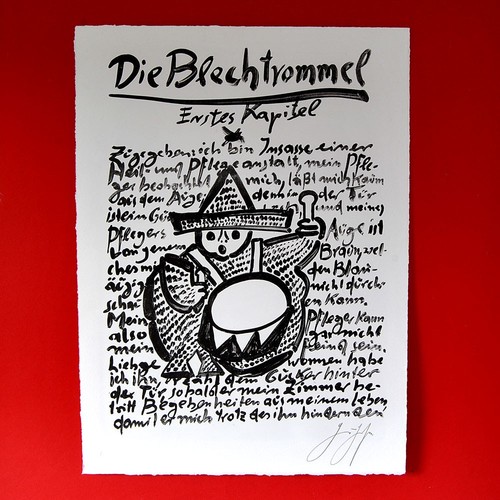 Die Blechtrommel
Erstes Kapitel
Zugegeben ich bin Insasse einer
Heil- und Pflegeanstalt, mein Pfle-
ger beobachtet mich, läßt mich kaum
aus dem Auge denn in der Tür
ist ein Guck und meines
Pflegers Auge ist
von jenem Braun, wel-
ches mi den Blau-
äugig nicht durch-
schau en kann.
Mein Pfleger kann
also gar nicht
mein Feind sein.
Liebge wonnen habe
ich ihn, erzähl dem Gucker hinter
der Tür sobald er mein Zimmer be-
tritt Begebenheiten aus meinem Leben,
damit er mich trotz des ihn hindernden